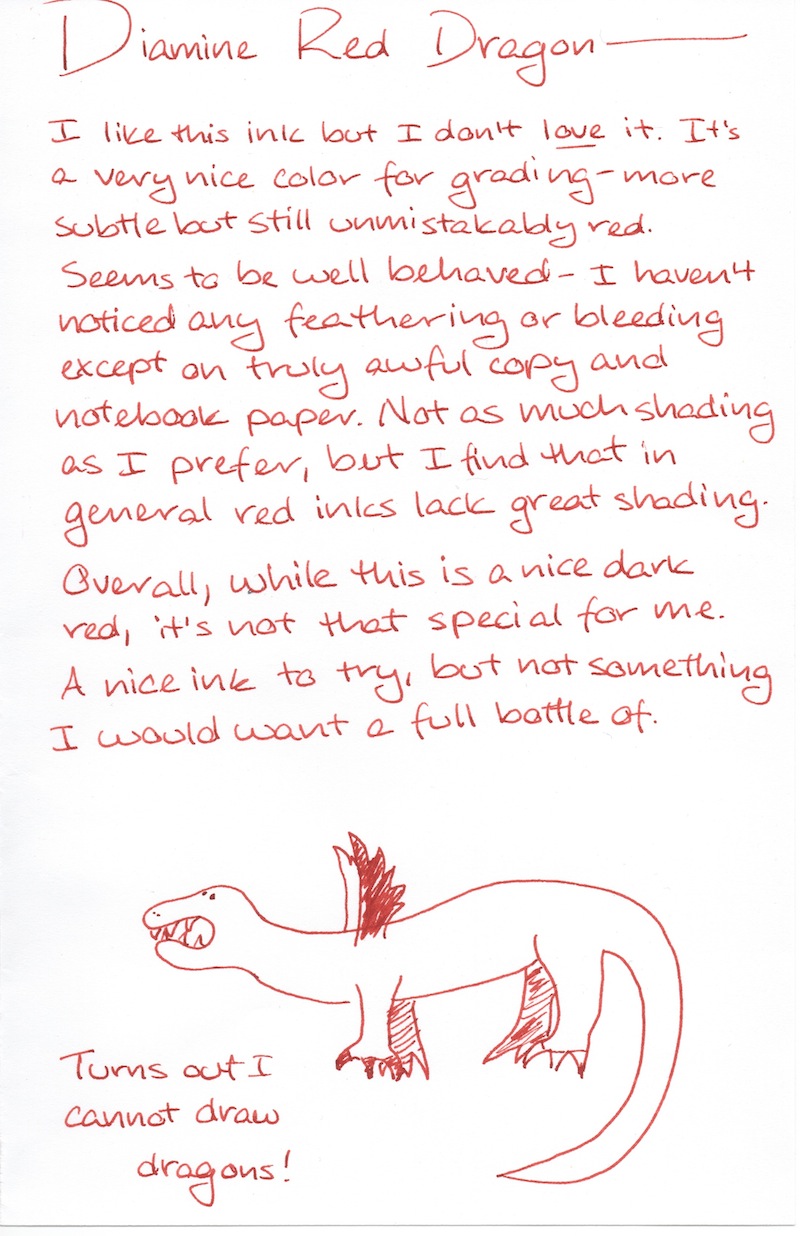 Diamine Red Dragon—
I like this ink but I don't love it. It's
a very nice color for grading-more
subtle but still unmistakably red.
Seems to be well behaved- I haven't
noticed any feathering or bleeding
except on truly awful copy and
notebook paper. Not as much shading
as I prefer, but I find that in
general red inks lack great shading.
Overall, while this is a nice dark
red, it's not that special for me.
A nice ink to try, but not something
I would want a full bottle of.
Turns out I
cannot draw
dragons!